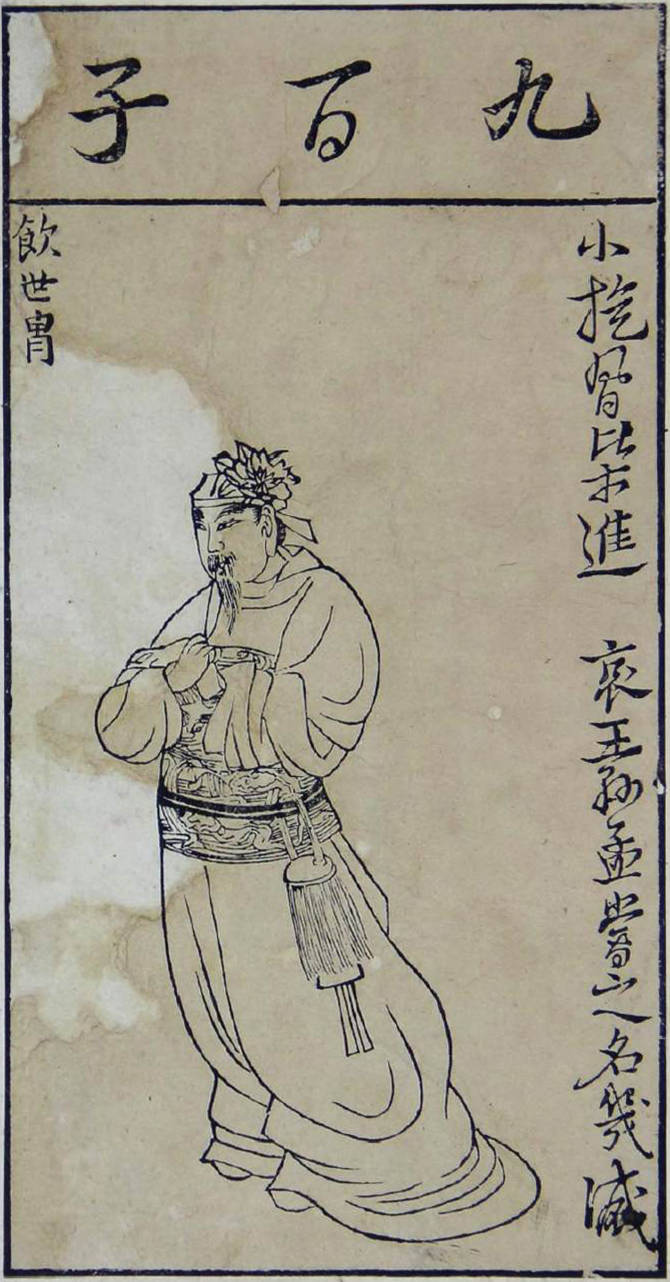 九百子
小旋風柴進 哀王孫孟嘗之名幾滅
飲世冑